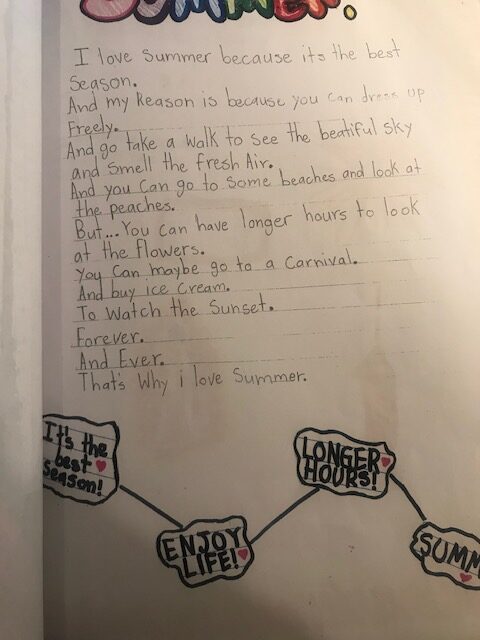 SUMMER!
I love Summer because its the best
Season.
And my Reason is because you can dress up
Freely.
And go take a walk to see the beatiful sky
and smell the fresh Air.
And you Can go to Some beaches and look at
the peaches.
But...You can have longer hours to look
at the flowers.
You Can maybe go to a Carnival.
And buy ice Cream.
To Watch the Sunset.
Forever.
And Ever.
That's Why i love Summer.
It's the
best
Season!
ENJOY
LIFE!
LONGER
HOURS!
SUMM